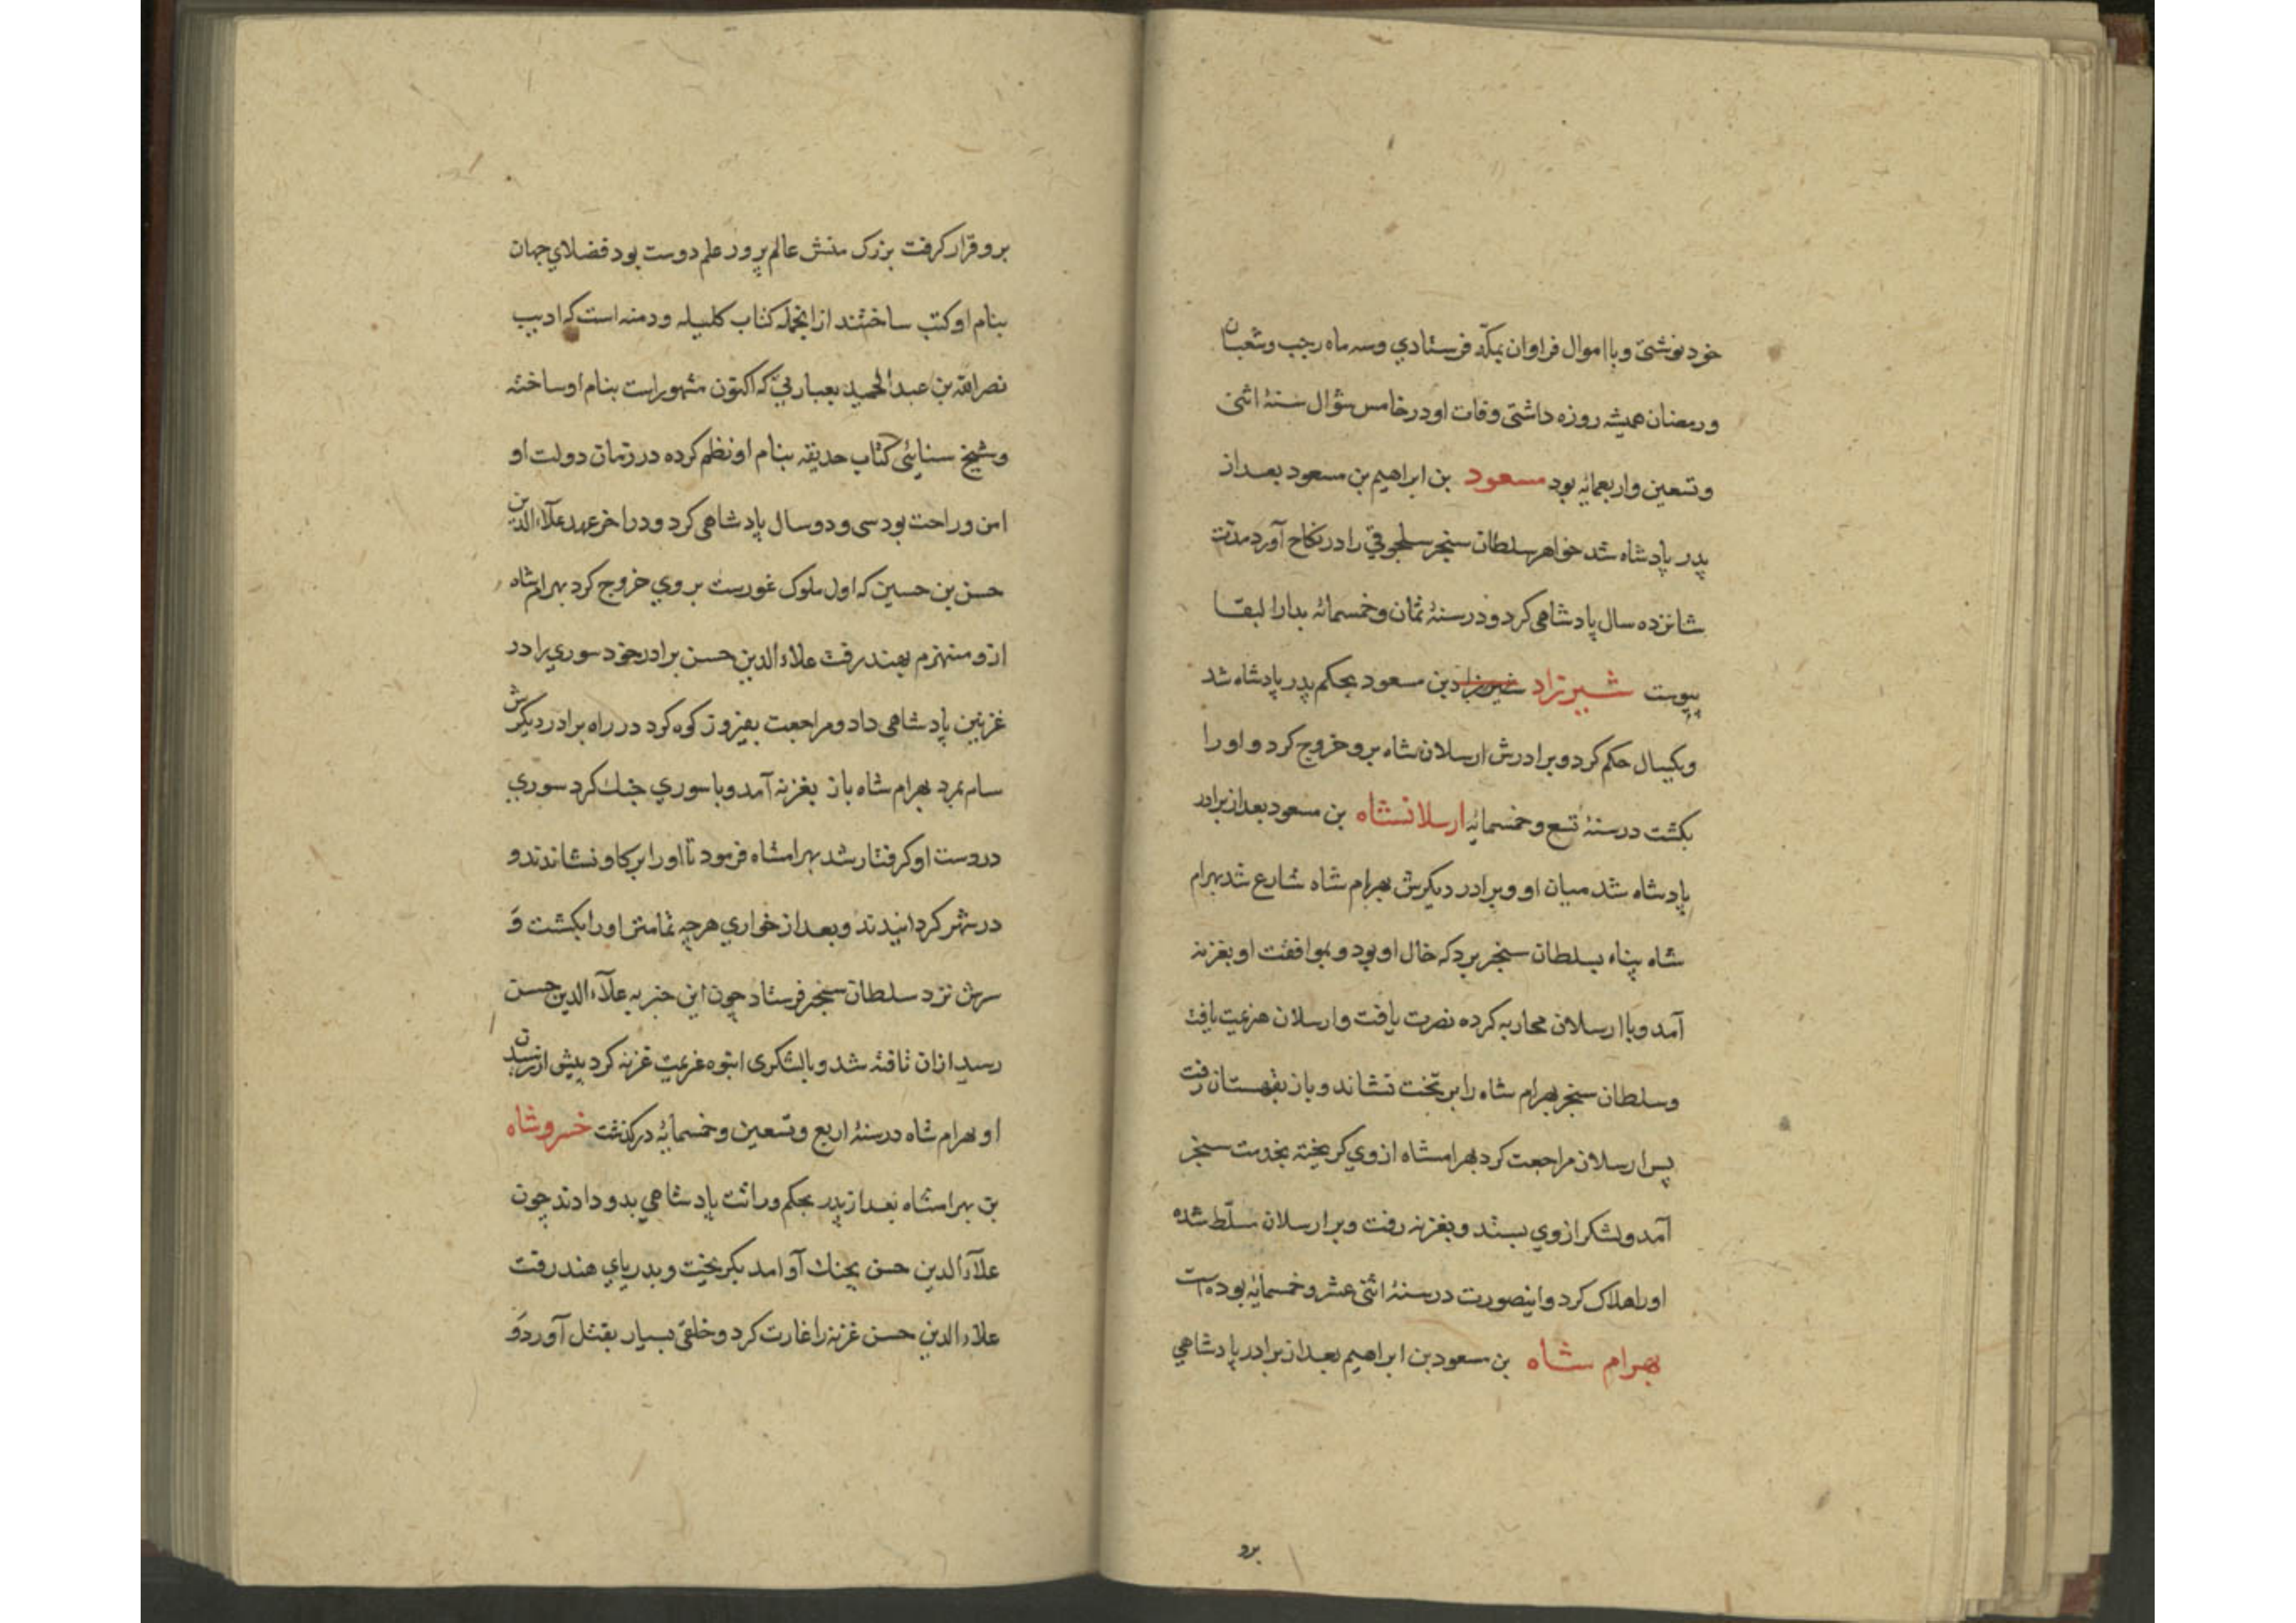 خود نوشتی و با اموال فراوان بمکّه فرستادي وسه ماه رجب وشعبان
ورمضان همیشه روزه داشتی وفات او در خامس شوال سنهٔ اثنی
وتسعین واربعمایٔه بود مسعود بن ابراهیم بن مسعود بعد از
پدر پادشاه شد خواهر سلطان سنجر سلجوقي را در نکاح آورد مدّت
شانزده سال پادشاهی کرد و در سنهٔ ثمان وخمسمائه بدار البقا
پیوست شیرزاد شیرزاد بن مسعود بحکم پدر پادشاه شد
ویکسال حکم کرد وبرادرش ارسلان شاه برو خروج کرد و او را
بکشت در سنهٔ تسع وخمسمایٔه ارسلانشاه بن مسعود بعد از برادر
پادشاه شد میان او وبرادر دیکرش بهرام شاه شارع شد بهرام
شاه پناه بسلطان سنجر برد که خال او بود و بموافقت او بغزنه
آمد وبا ارسلان محاربه کرده نصرت یافت وارسلان هزیمت یافت
وسلطان سنجر بهرام شاه را بر تخت نشاند و باز بقهستان رفت
پس ارسلان مراجعت کرد بهرامشاه از وي کریخته بخدمت سنجر
آمد ولشکر از وي بستد و بغزنه رفت وبر ارسلان مسلّط شده
اورا هلاک کرد و اینصورت در سنهٔ اثنی عشر وخمسمایٔه بوده است
بهرام شاه بن مسعود بن ابراهیم بعد از برادر پادشاهي
برو
برو قرار کرفت بزرک منش عالم پرور علم دوست بود فضلاي جهان
بنام او کتب ساختند از انجمله کتاب کلیله ودمنه است که ادیب
نصرالله بن عبدالحمید بعبارتي که اکنون مشهور است بنام او ساخته
وشیخ سنائی کتاب حدیقه بنام او نظم کرده در زمان دولت او
امن وراحت بود سی ودو سال پادشاهی کرد ودر اخر عهد علآء الدین
حسن بن حسین که اول ملوک غورست بروي خروج کرد بهرامشاه
ازو منهزم بهند رفت علاء الدین حسن برادر خود سوري را در
غزنین پادشاهی داد ومراجعت بفیروز کوه کرد در راه برادر دیکرش
سام بمرد بهرام شاه باز بغزنه آمد وبا سوري جنك کرد سوري
در دست او کرفتار شد بهرامشاه فرمود تا اورا بر کاو نشاندند و
در شهر کردانیدند وبعد از خواري هرچه تمامتر اورا بکشت و
سرش نزد سلطان سنجر فرستاد چون این خبر به علآء الدین حسن
رسید ازان تافته شد و بالشکری انبوه عزیمت غزنه کرد پیش از رسیدن
او بهرام شاه در سنهٔ اربع وتسعین وخمسمایٔه درکذشت خسروشاه
بن بهرامشاه بعد از پدر بحکم وراثت پادشاهي بدو دادند چون
علآء الدین حسن بجنك آو امد بکریخت و بدریاي هند رفت
علاء الدین حسن غزنه را غارت کرد وخلقی بسیار بقتل آورد و